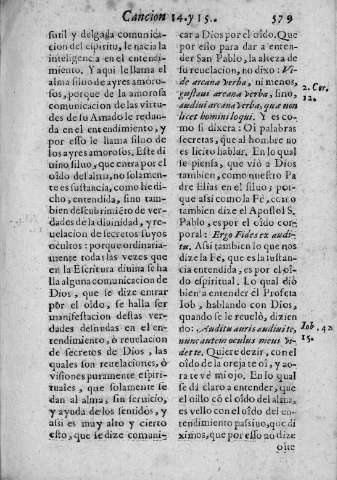 Cancion 14. y 15.
579
sutil y delgada comunica-
cion del espiritu, le nacia la
inteligencia en el entendi-
miento. Y aqui le llama el
alma siluo de ayres amoro-
sos, porque de la amorosa
comunicacion de las virtu-
des de su Amado le redun-
da en el entendimiento, y
por esso le llama siluo de
los ayres amorosos. Este di
uino siluo, que entra por el
oîdo del alma, no solamen-
te es sustancia, como he di-
cho, entendida, sino tam-
bien descubrimiẽto de ver-
dades de la diuinidad, y re-
uelacion de secretos suyos
ocultos: porque ordinaria-
mente todas las vezes que
en la Escritura diuina se ha
lla alguna comunicacion de
Dios, que se dize entrar
por el oîdo, se halla ser
manifestacion destas ver-
dades desnudas en el en-
tendimiento, ò reuelacion
de secretos de Dios, las
quales son reuelaciones, ò
visiones puramente espiri-
tuales, que solamente se
dan al alma, sin seruicio,
y ayuda de los sentidos, y
assi es muy alto y cierto
esto, que se dize comuni-
car a Dios por el oîdo. Que
por esso para dar a enten-
der San Pablo, la alteza de
su reuelacion, no dixo: Vi-
de arcana verba, ni menos,
gustaui arcana verba, sino,
audiui arcana verba, quæ non
licet homini loqui. Y es co-
mo si dixera: Oî palabras
secretas, que al hombre no
es licito hablar. En lo qual
se piensa, que viò a Dios
tambien, como nuestro Pa
dre Elias en el siluo; por-
que assi como la Fè, como
tambien dize el Apostol S.
Pablo, es por el oîdo cor-
poral: Ergo Fides ex audi-
tu. Assi tambien lo que nos
dize la Fè, que es la sustan-
cia entendida, es por el oî-
do espiritual. Lo qual diò
bien a entender el Profeta
Iob, hablando con Dios,
quando se le reuelò, dizien
do: Auditu auris audiui te,
nunc autem oculus meus vi-
det te. Quiere dezir, con el
oîdo de la oreja te oî, y ao-
ra te vè mi ojo. En lo qual
se dà claro a entender, que
el oîllo cõ el oîdo del alma,
es vello con el oîdo del en-
tendimiento passiuo, que di
ximos, que por esso no dize
oîte
2. Cor.
12.
Iob. 42